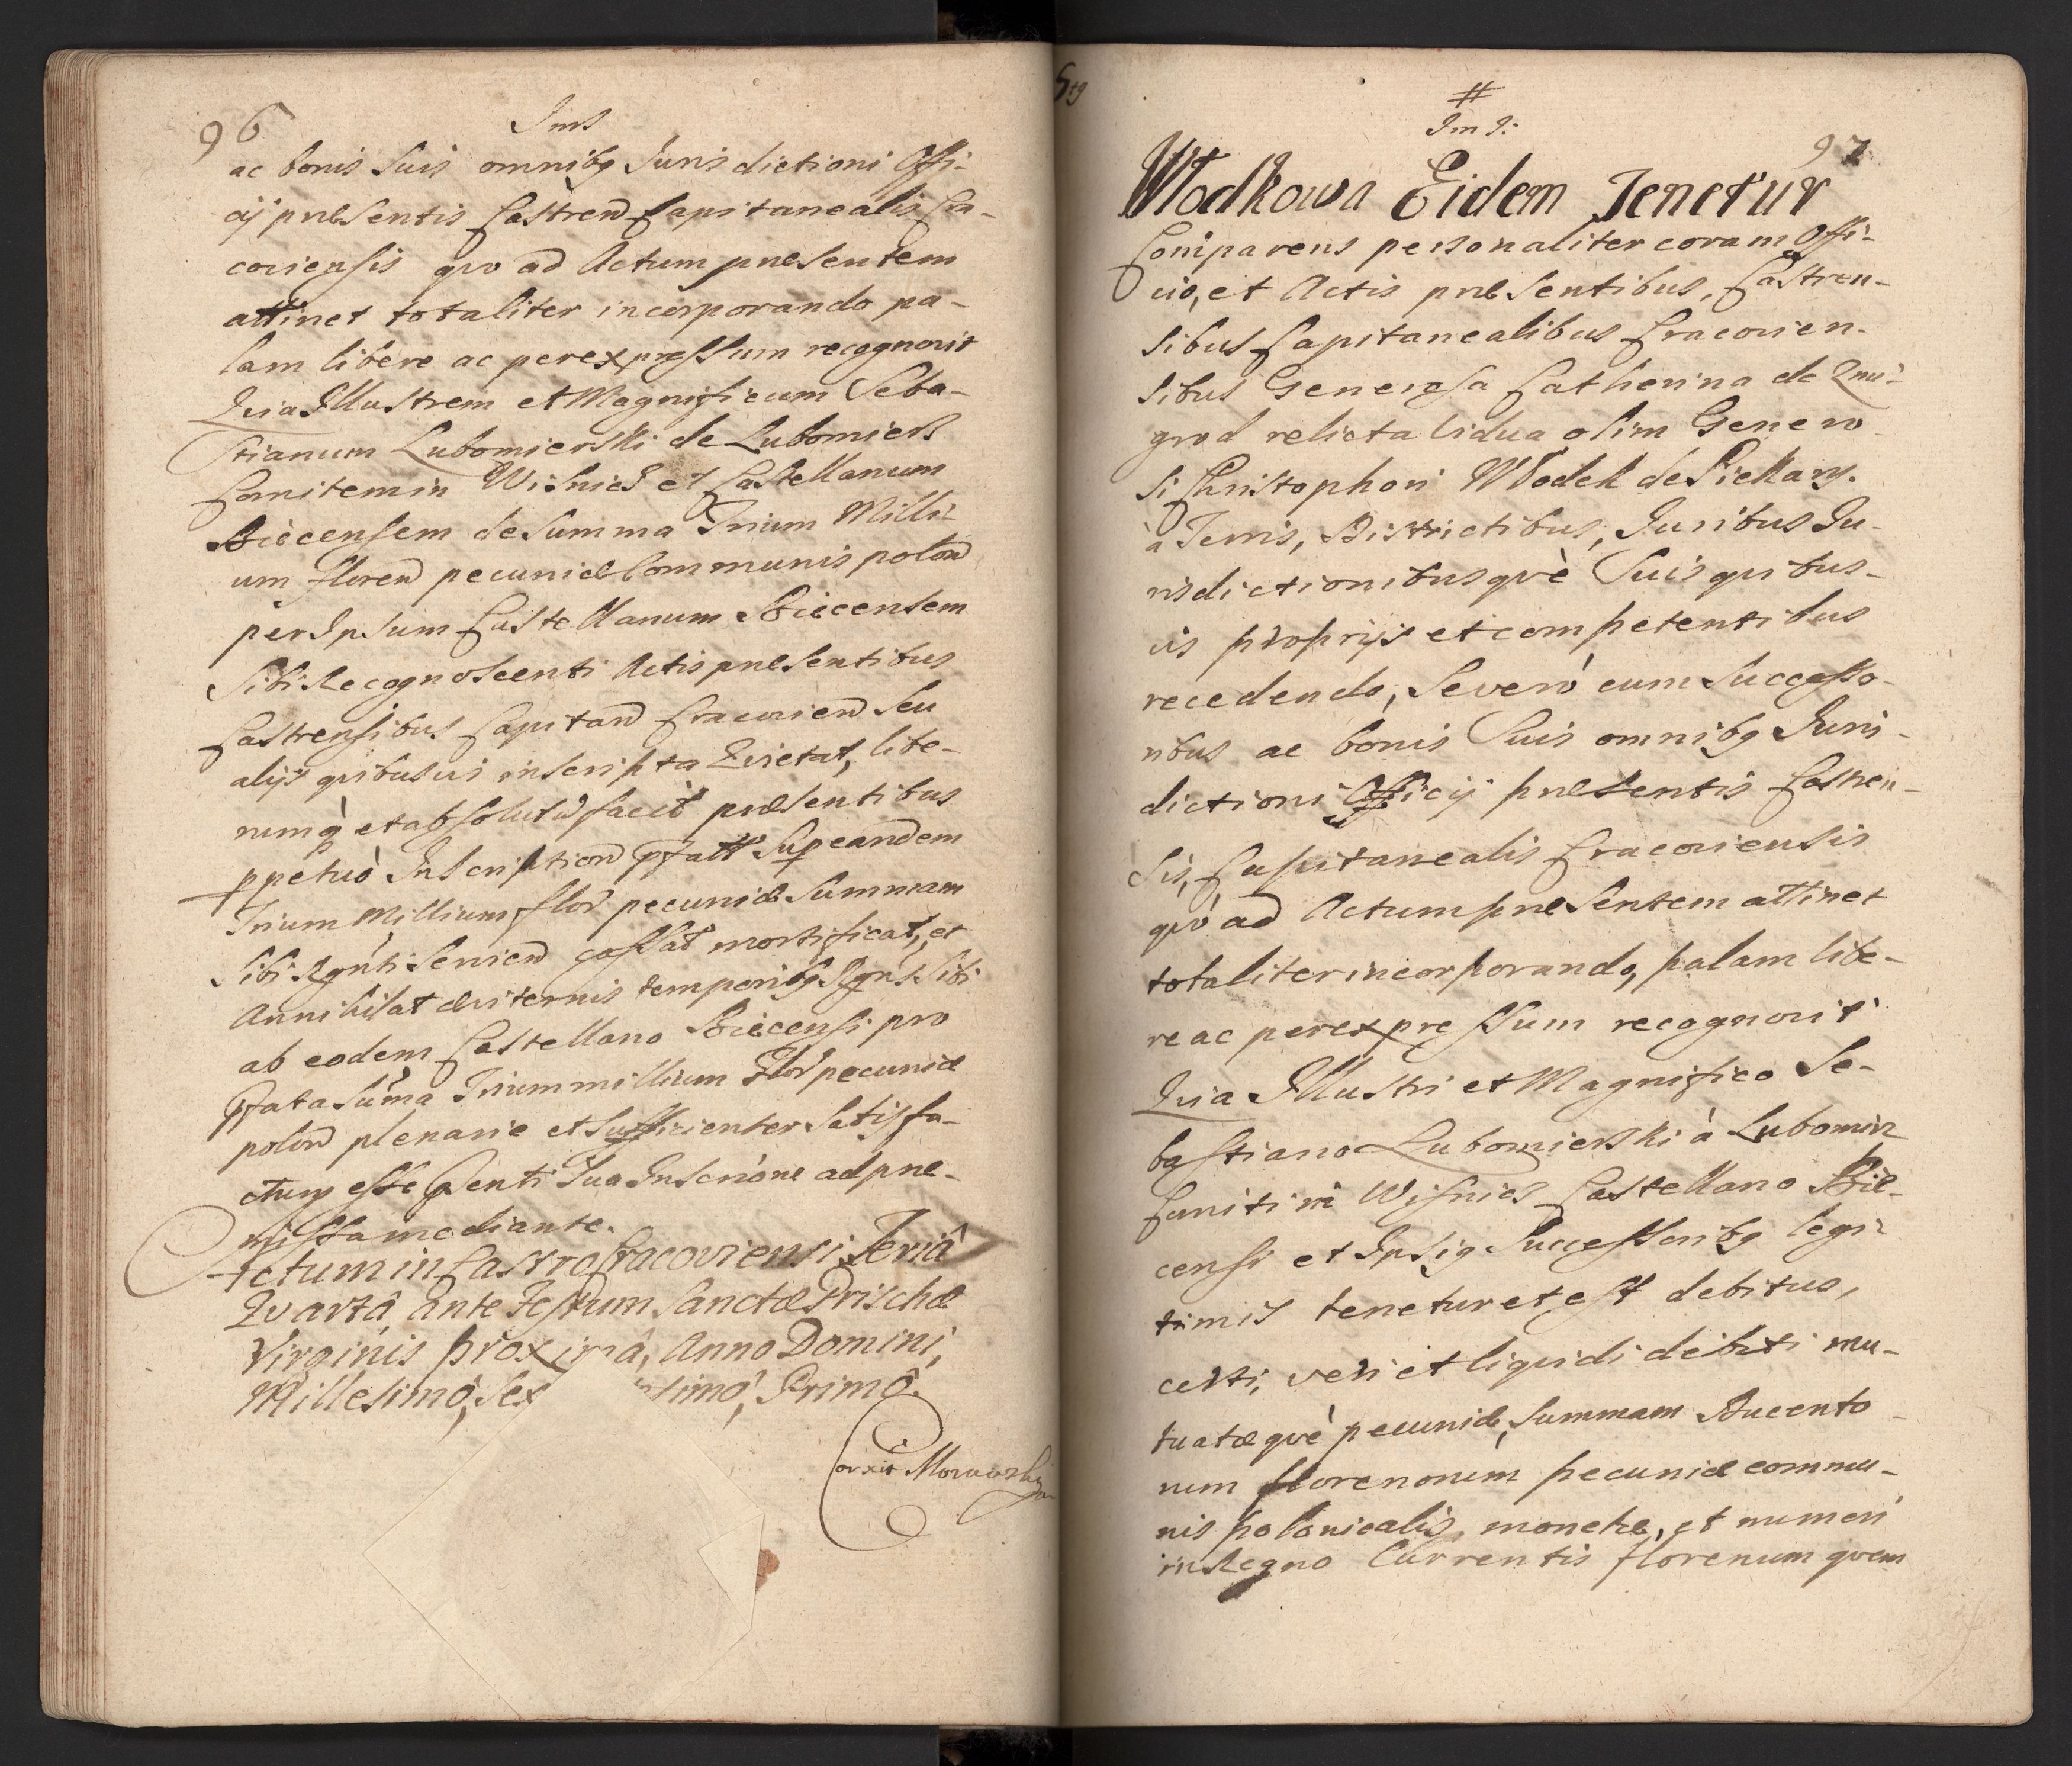 96
ac bonis Suis omnibq Jurisdictioni Offi-
cij præsentis Castren Capitanealis Cra-
coviensis quo ad Actum præsentem
attinet totaliter incorporando pa-
lam libere ac per expressum recognovit
Quia Illustrem et Magnificum Seba-
stianum Lubomierski de Lubomierz
Comitem in Wisnicz et Castellanum
Biecensem de Summa Trium Milli-
um floren pecuniæ Communis polon
per Ipsum Castellanum Biecensem
Sibi Recognoscenti Actis præsentibus
Castrensibus Capitan Cracovien Seu
alijs quibusvis inscripta Quietat, libe-
rumq et absolutu facit præsentibus
ppetuò Inscription pfatt Supeandem
Trium Millium flor pecuniæ Summam
Sibi Rgnti Servien cassat mortificat, et
Annihilat æviternis temporibq Rgnt Sibi
ab eodem Castellano Biecensi pro
pfata Suma Trium millium flor pecuniæ
polon plenarie et Sufficienter Satisfa-
ctum esse pnti Sua Inscrione ad præ-
missa mediante.
Actum in Castro Cracoviensi Feriâ
Quartâ ante Festum Sanctæ Priscæ
Virginis proximâ, Anno Domini,
Millesimô, Sex simô, Primô.
Corxit
97
Włodkowa Eidem Tenetur
Comparens personaliter coram Offi-
cio, et Actis præsentibus, Castren-
sibus Capitanealibus Cracovien-
sibus Generosa Catherina de Zmi-
grod relicta Vidua olim Genero
si Christophori Włodek de Piekary.
a Terris, Districtibus, Juribus Ju-
risdictionibusquè Suis quibus-
vis proprijs et competentibus
recedendo, Severò cum Successo-
ribus ac bonis Suis omnibq Juris-
dictioni Officij præsentis Castren-
sis, Capitanealis Cracoviensis
quò ad Actum præsentem attinet
totaliter incorporando, palam libe-
re ac per expressum recognovit
Quia Illustri et Magnifico Se-
bastiano Lubomierski à Lubomirz
Comiti in Wisnicz Castellano Bie-
censi et Ipsiq Successoribq legi-
timis tenetur et est debitus,
certi, veri et liquidi debiti mu-
tuatæquè pecuniæ, Summam Ducento-
rum florenorum pecuniæ commu-
nis polonicalis, monetæ, et numeri
in Regno Currentis florenum quem